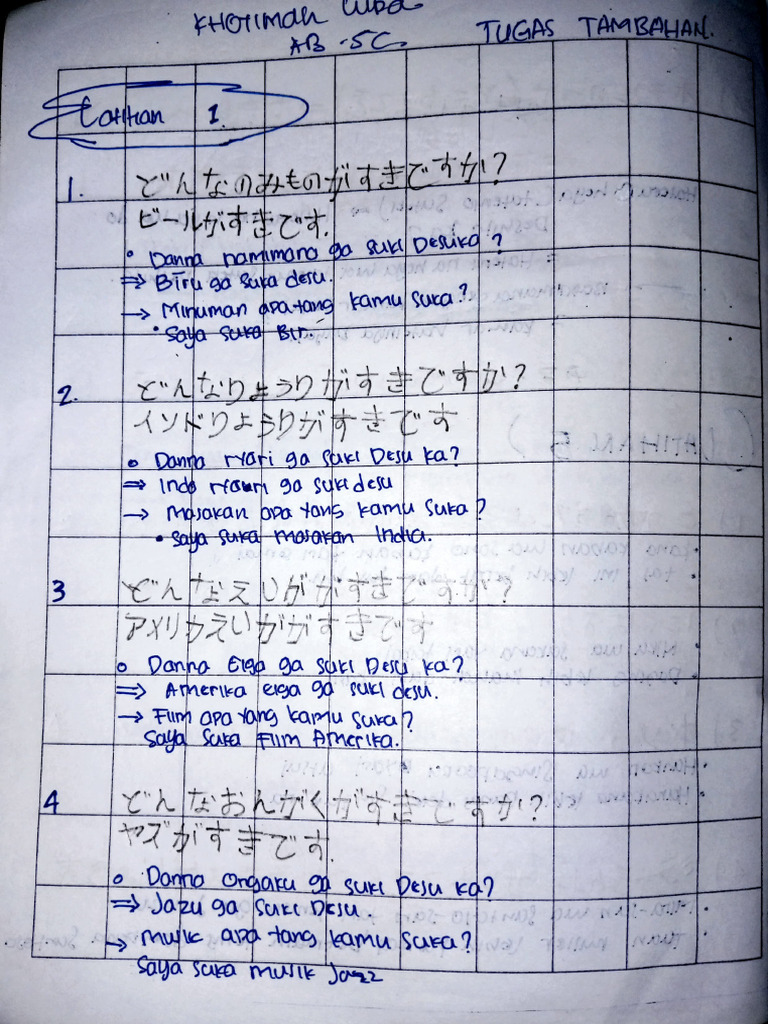 KHOTIMAH
AB-5C. TUGAS TAMBAHAN.
Latihan 1.
1. どんなのみものがすきですか?
ビールがすきです.
• Danna namimano ga suki Desuka?
⇒ Biru ga suka desu.
→ Minuman apa yang kamu suka?
• Saya suka Bir.
2. どんなりょうりがすきですか?
インドりょうりがすきです
• Danna ryari ga suki Desu ka?
⇒ Indo ryauri ga suki desu
→ masakan apa yang kamu suka?
• Saya suka masakan India.
3 どんなえいががすきですか?
アメリカえいががすきです
• Danna Eiga ga suki Desu ka?
⇒ Amerika eiga ga suki desu.
→ Film apa yang kamu suka?
Saya suka Film Amerika.
4 どんなおんがくがすきですか?
ャズがすきです.
• Danna ongaku ga suki Desu ka?
⇒ Jazu ga suki Desu
→ musik apa yang kamu suka?
Saya suka musik Jazz